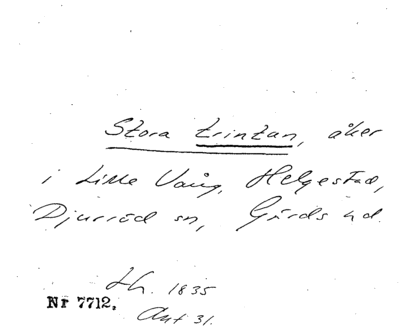 Stora trintan, åker
i Lille Vång, Helgestad,
Djurröd sn, Gärds hd.
Lh. 1835
Nr 7712.
Akt 31.